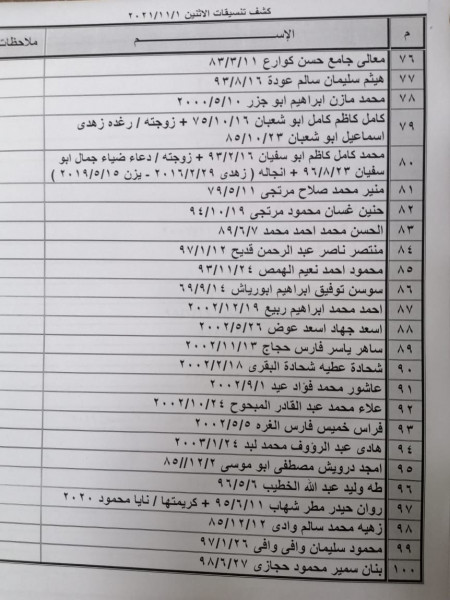 كشف تنسيقات الاثنين ٢٠٢١/١١/١
م الإســـــم ملاحظات
٧٦ معالى جامع حسن كوارع ٨٣/٣/١١
٧٧ هيثم سليمان سالم عودة ٩٣/٨/١٦
٧٨ محمد مازن ابراهيم ابو جزر ٢٠٠٠/٥/١٠
٧٩ كامل كاظم كامل ابو شعبان ٧٥/١٠/١٦ + زوجته / رغده زهدى
اسماعيل ابو شعبان ٨٥/١٠/٢٣
٨٠ محمد كامل كاظم ابو سفيان ٩٣/٢/١٦ + زوجته / دعاء ضياء جمال ابو
سفيان ٩٦/٨/٢٣ + انجاله ( زهدى ٢٠١٦/٢/٢٩ - يزن ٢٠١٩/٥/١٥ )
٨١ منير محمد صلاح مرتجى ٧٩/٥/١١
٨٢ حنين غسان محمود مرتجى ٩٤/١٠/١٩
٨٣ الحسن محمد احمد محمد ٨٩/٦/٧
٨٤ منتصر ناصر عبد الرحمن قديح ٩٧/١/١٢
٨٥ محمود احمد نعيم الهمص ٩٣/١١/٢٤
٨٦ سوسن توفيق ابراهيم ابورياش ٦٩/٩/١٤
٨٧ احمد محمد ابراهيم ربيع ٢٠٠٢/١٢/١٩
٨٨ اسعد جهاد اسعد عوض ٢٠٠٢/٥/٢٦
٨٩ ساهر ياسر فارس حجاج ٢٠٠٢/١١/١٣
٩٠ شحادة عطيه شحادة البقرى ٢٠٠٢/٢/١٨
٩١ عاشور محمد فؤاد عيد ٢٠٠٢/٩/١
٩٢ علاء محمد عبد القادر المبحوح ٢٠٠٢/١٠/٢٤
٩٣ فراس خميس فارس الغره ٢٠٠٢/٥/٥
٩٤ هادى عبد الرؤوف محمد لبد ٢٠٠٣/١/٢٤
٩٥ امجد درويش مصطفى ابو موسى ٨٥//١٢/٢
٩٦ طه وليد عبد الله الخطيب ٩٦/٥/٦
٩٧ روان حيدر مطر شهاب ٩٥/٦/١١ + كريمتها / نايا محمود ٢٠٢٠
٩٨ زهيه محمد سالم وادى ٨٥/١٢/١٢
٩٩ محمود سليمان وافى وافى ٩٧/١/٢٦
١٠٠ بنان سمير محمود حجازى ٩٨/٦/٢٧